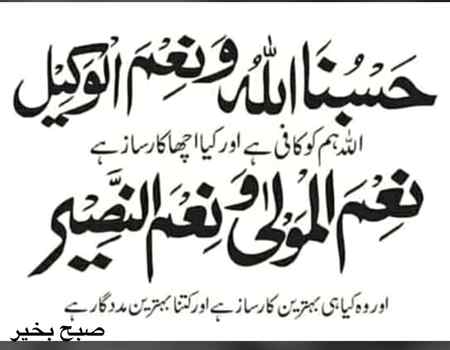 حَسْبُنَا اللهُ وَنِعْمَ الْوَكِيْل
اللہ ہم کو کافی ہے اور کیا اچھا کارساز ہے
نِعْمَ الْمَوْلٰى وَنِعْمَ النَّصِيْر
اور وہ کیا ہی بہترین کارساز ہے اور کتنا بہترین مددگار ہے
صبح بخير